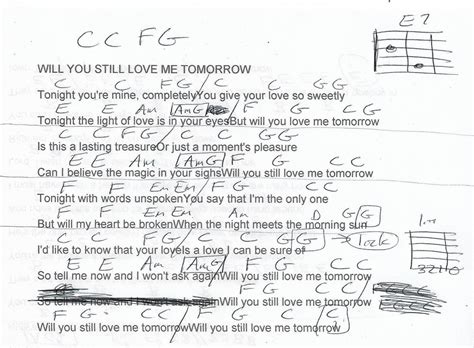 E7
C C F G
WILL YOU STILL LOVE ME TOMORROW
C C F G / C C G G
Tonight you're mine, completelyYou give your love so sweetly
E E Am Am G F G C C
Tonight the light of love is in your eyesBut will you love me tomorrow
C C F G / C C G G
Is this a lasting treasureOr just a moment's pleasure
E E Am Am G F G C C
Can I believe the magic in your sighsWill you still love me tomorrow
F F Em Em / F F C C
Tonight with words unspokenYou say that I'm the only one
F F Em Em Am D G G
But will my heart be brokenWhen the night meets the morning sun
C C F G / C C G G
I'd like to know that your loveIs a love I can be sure of
32110
E E Am Am G F G C C
So tell me now and I won't ask againWill you still love me tomorrow
So tell me now and I won't ask againWill you still love me tomorrow
F G C C / F G C C
Will you still love me tomorrowWill you still love me tomorrow